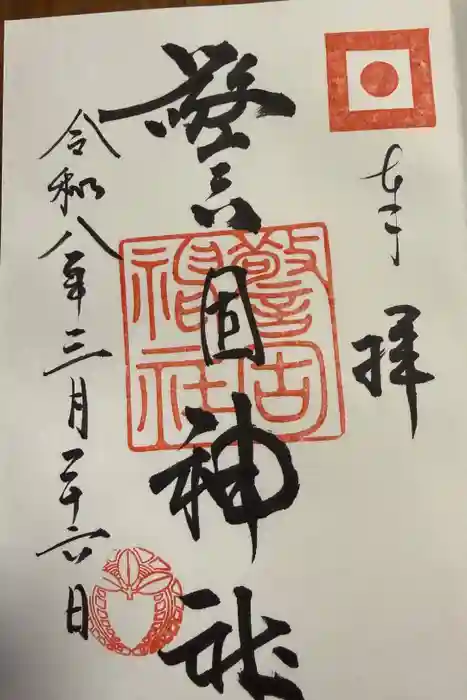 奉拝
警固神社
警固神社
令和八年三月二十六日